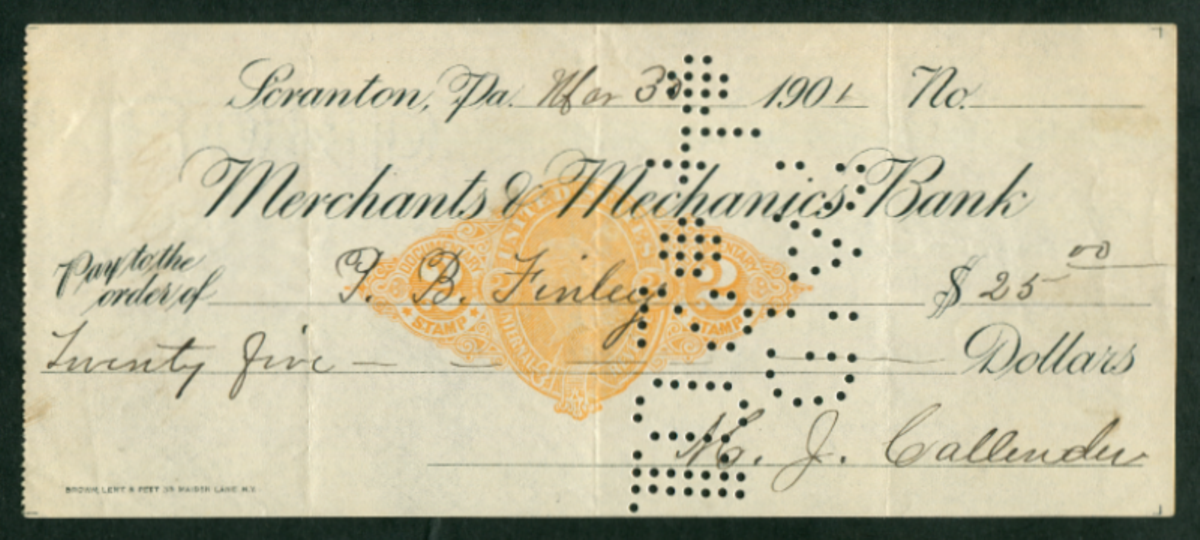 Scranton, Pa. Mar 30 1901 No.
Merchants & Mechanics Bank
Pay to the order of P. B. Finley $ 25 00
Twenty five Dollars
M. J. Callender
UNITED STATES
DOCUMENTARY
2 2
STAMP STAMP
BROWN, LENT & PETT 59 MAIDEN LANE, N.Y.